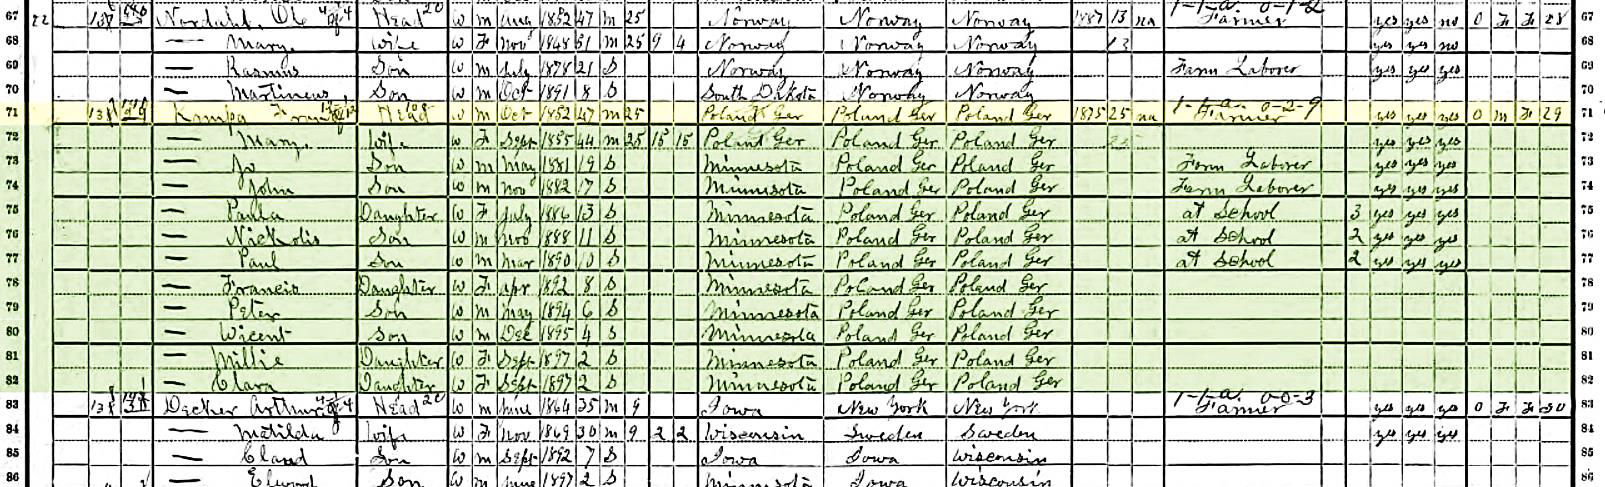 67 22 Nordahl, Ol Head W M Aug 1852 47 M 25 Norway Norway Norway 1887 13 na Farmer yes yes no O F F 28 67
68 — Mary Wife W F Nov 1848 51 M 25 9 4 Norway Norway Norway 13 yes yes no 68
69 — Rasmus Son W M July 1878 21 S Norway Norway Norway Farm Laborer yes yes yes 69
70 — Martineus Son W M Oct 1891 8 S South Dakota Norway Norway 70
71 Kampa Head W M Oct 1852 47 M 25 Poland Ger Poland Ger Poland Ger 1875 25 na Farmer yes yes yes O M F 29 71
72 — Mary Wife W F Sept 1855 44 M 25 15 15 Polant Ger Poland Ger Poland Ger yes yes yes 72
73 — Jo Son W M May 1881 19 S Minnesota Poland Ger Poland Ger Farm Laborer yes yes yes 73
74 — John Son W M Nov 1882 17 S Minnesota Poland Ger Poland Ger Farm Laborer yes yes yes 74
75 — Paula Daughter W F July 1886 13 S Minnesota Poland Ger Poland Ger at School 3 yes yes yes 75
76 — Nickolis Son W M Nov 1888 11 S Minnesota Poland Ger Poland Ger at School 2 yes yes yes 76
77 — Paul Son W M Mar 1890 10 S Minnesota Poland Ger Poland Ger at School 2 yes yes yes 77
78 — Francis Daughter W F Apr 1892 8 S Minnesota Poland Ger Poland Ger 78
79 — Peter Son W M May 1894 6 S Minnesota Poland Ger Poland Ger 79
80 — Vicent Son W M Dec 1895 4 S Minnesota Poland Ger Poland Ger 80
81 — Millie Daughter W F Sept 1897 2 S Minnesota Poland Ger Poland Ger 81
82 — Clara Daughter W F Sept 1897 2 S Minnesota Poland Ger Poland Ger 82
83 Decker Arthur Head W M June 1864 35 M 9 Iowa New York New York Farmer yes yes yes O F F 30 83
84 — Matilda Wife W F Nov 1869 30 M 9 2 2 Wisconsin Sweden Sweden yes yes yes 84
85 — Claud Son W M Sept 1892 7 S Iowa Iowa Wisconsin 85
86 — Elwood Son W M June 1897 2 S Minnesota Iowa Wisconsin 86